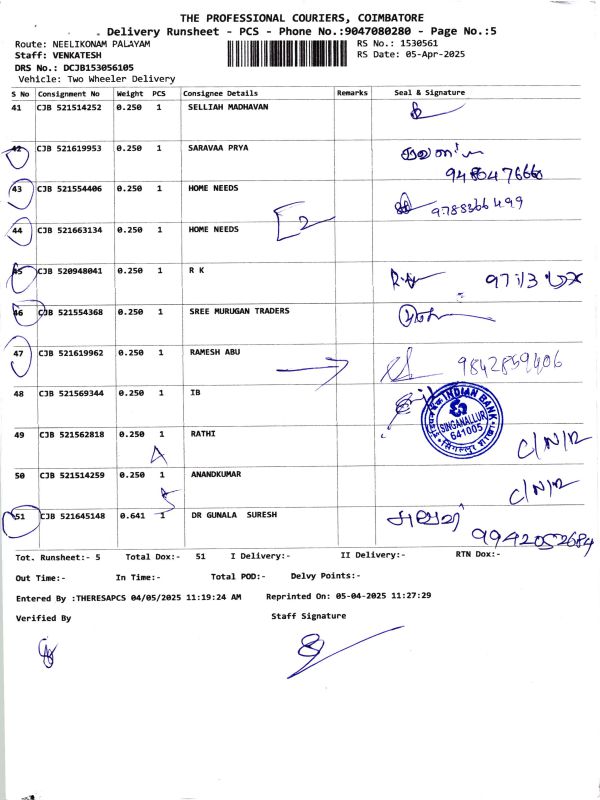 THE PROFESSIONAL COURIERS, COIMBATORE
. Delivery Runsheet - PCS - Phone No.:9047080280 - Page No.:5
Route: NEELIKONAM PALAYAM RS No.: 1530561
Staff: VENKATESH RS Date: 05-Apr-2025
DRS No.: DCJB153056105
Vehicle: Two Wheeler Delivery
S No Consignment No Weight PCS Consignee Details Remarks Seal & Signature
41 CJB 521514252 0.250 1 SELLIAH MADHAVAN
42 CJB 521619953 0.250 1 SARAVAA PRYA
43 CJB 521554406 0.250 1 HOME NEEDS 9788366499
44 CJB 521663134 0.250 1 HOME NEEDS 2
45 CJB 520948041 0.250 1 R K
46 CJB 521554368 0.250 1 SREE MURUGAN TRADERS
47 CJB 521619962 0.250 1 RAMESH ABU 9842859406
48 CJB 521569344 0.250 1 IB
INDIAN BANK
SINGANALLUR
641005
49 CJB 521562818 0.250 1 RATHI C/N/R
50 CJB 521514259 0.250 1 ANANDKUMAR C/N/R
51 CJB 521645148 0.641 1 DR GUNALA SURESH
9942052684
Tot. Runsheet:- 5 Total Dox:- 51 I Delivery:- II Delivery:- RTN Dox:-
Out Time:- In Time:- Total POD:- Delvy Points:-
Entered By :THERESAPCS 04/05/2025 11:19:24 AM Reprinted On: 05-04-2025 11:27:29
Verified By Staff Signature